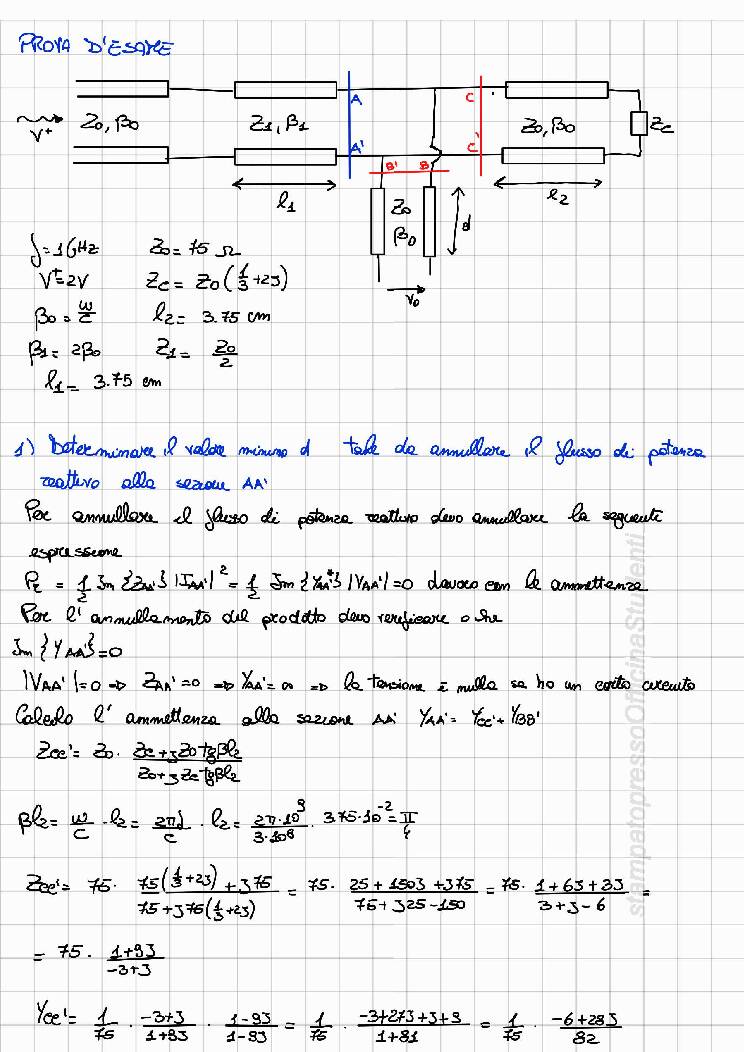 PROVA D'ESAME
V+
Z0, β0
Z1, β1
A
A'
B'
B
C
C'
Z0, β0
Zc
l1
l2
Z0
β0
d
V0
f=1GHz Z0= 75 Ω
V+=2V Zc= Z0(1/3+2j)
β0= ω/c l2= 3.75 cm
β1= 2β0 Z1= Z0/2
l1= 3.75 cm
1) Determinare il valore minimo d tale da annullare il flusso di potenza
reattivo alla sezione AA'
Per annullare il flusso di potenza reattivo devo annullare la seguente
espressione
Pz = 1/2 Im{ZAA'} |IAA'|² = 1/2 Im{YAA'*} |VAA'| = 0 lavoro con le ammettenze
Per l'annullamento del prodotto devo verificare o che
Im{YAA'}=0
|VAA'|=0 => ZAA'=0 => YAA'=∞ => la tensione è nulla se ho un corto circuito
Calcolo l'ammettenza alla sezione AA' YAA'= YCC'+YBB'
ZCC'= Z0 · (Zc+jZ0 tgβl2)/(Z0+jZc tgβl2)
βl2= ω/c · l2= 2πf/c · l2= 2π·10⁹/3·10⁸ · 3.75·10⁻²= π/4
ZCC'= 75 · (75(1/3+2j)+j75)/(75+j75(1/3+2j)) = 75 · (25+150j+j75)/(75+j25-150) = 75 · (1+6j+3j)/(3+j-6) =
= 75 · (1+9j)/(-3+j)
YCC'= 1/75 · (-3+j)/(1+9j) · (1-9j)/(1-9j) = 1/75 · (-3+27j+j+9)/(1+81) = 1/75 · (-6+28j)/82
stampatopressoOfficinaStudenti